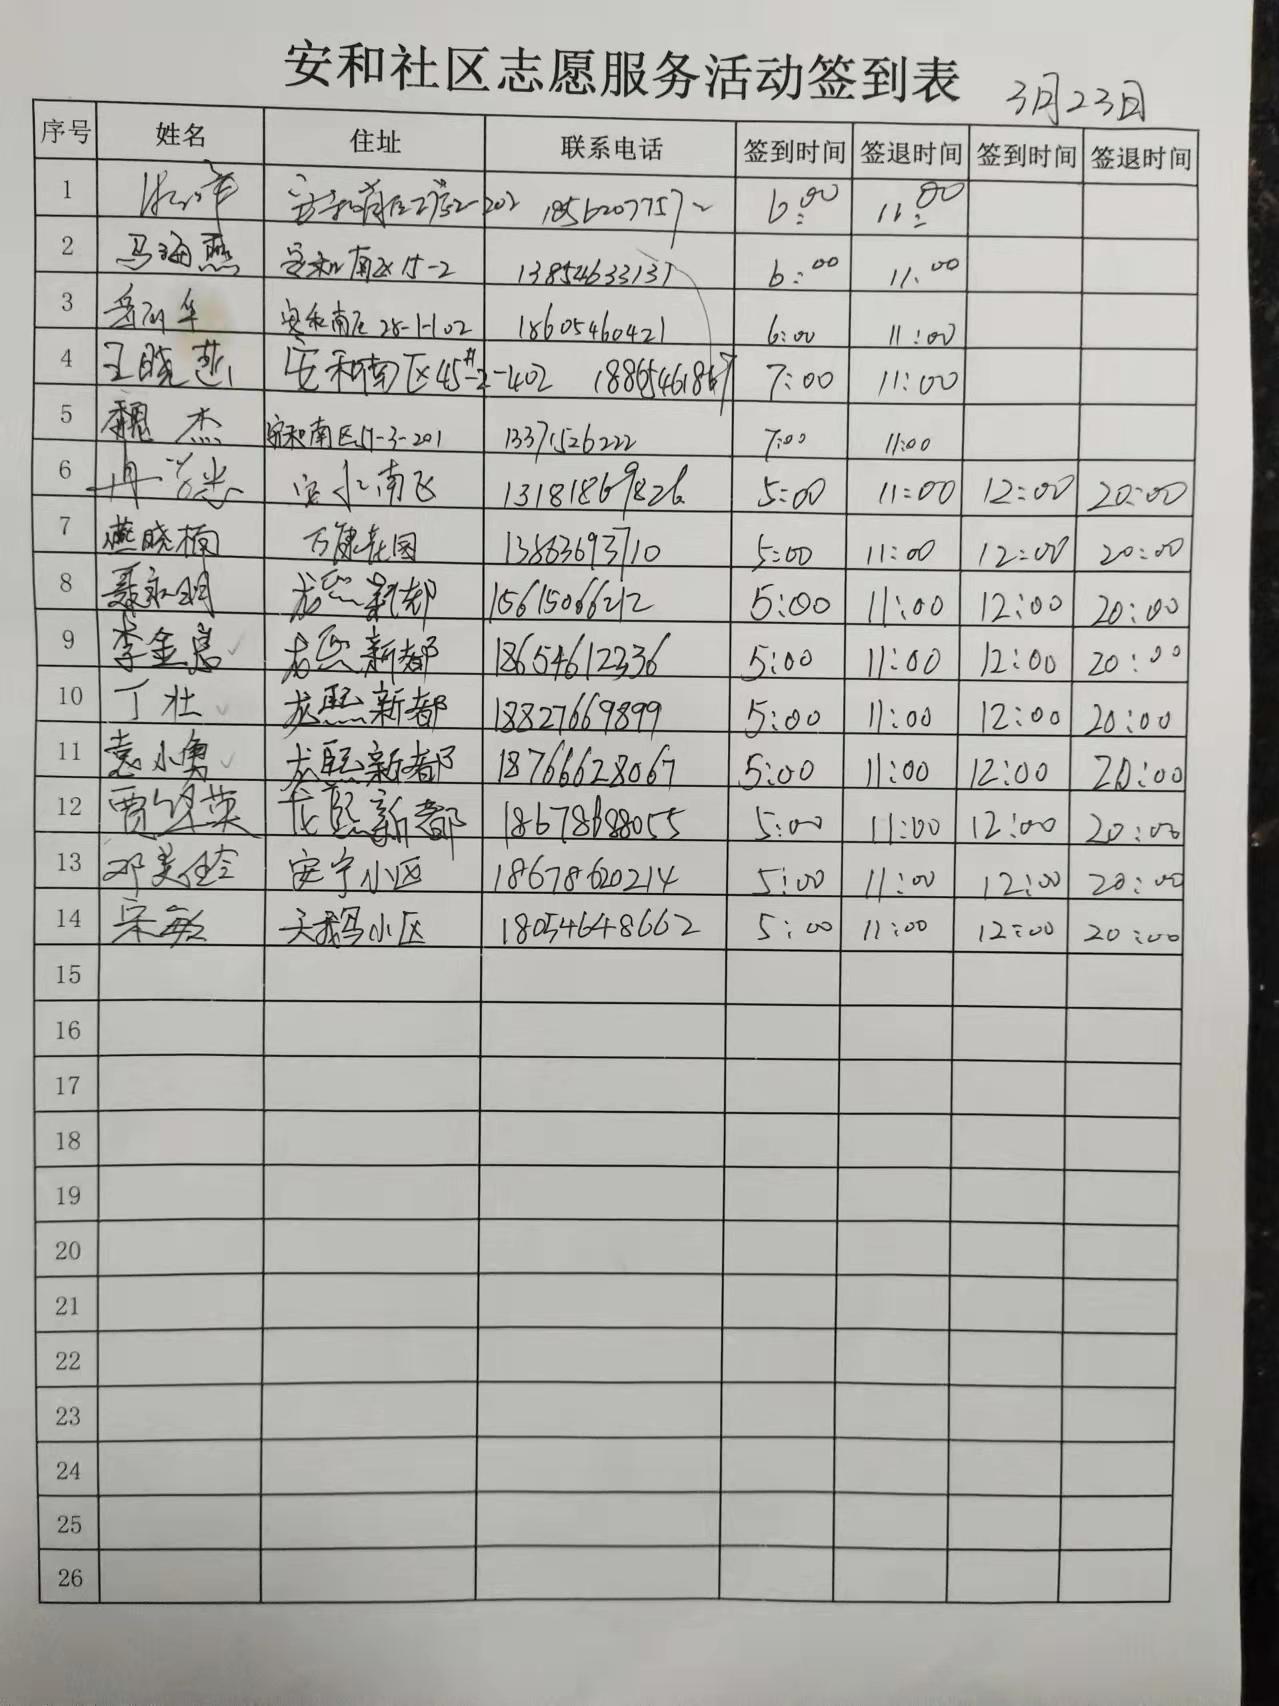 安和社区志愿服务活动签到表 3月23日
序号 姓名 住址 联系电话 签到时间 签退时间 签到时间 签退时间
1 6:00 11:00
2 马海燕 安和南区15-2 13854633137 6:00 11:00
3 安和南区28-1-102 18605460421 6:00 11:00
4 王晓燕 安和南区45#-2-402 18865461867 7:00 11:00
5 魏杰 安和南区17-3-201 13371526222 7:00 11:00
6 13181869826 5:00 11:00 12:00 20:00
7 燕晓楠 万康花园 13863693710 5:00 11:00 12:00 20:00
8 聂永明 龙熙新都 15615066212 5:00 11:00 12:00 20:00
9 李金忠 龙熙新都 18654612336 5:00 11:00 12:00 20:00
10 丁壮 龙熙新都 18827669899 5:00 11:00 12:00 20:00
11 袁小勇 龙熙新都 18766628067 5:00 11:00 12:00 20:00
12 龙熙新都 18678688055 5:00 11:00 12:00 20:00
13 邓美玲 安宁小区 18678620214 5:00 11:00 12:00 20:00
14 宋敏 天鹅小区 18054648662 5:00 11:00 12:00 20:00
15
16
17
18
19
20
21
22
23
24
25
26